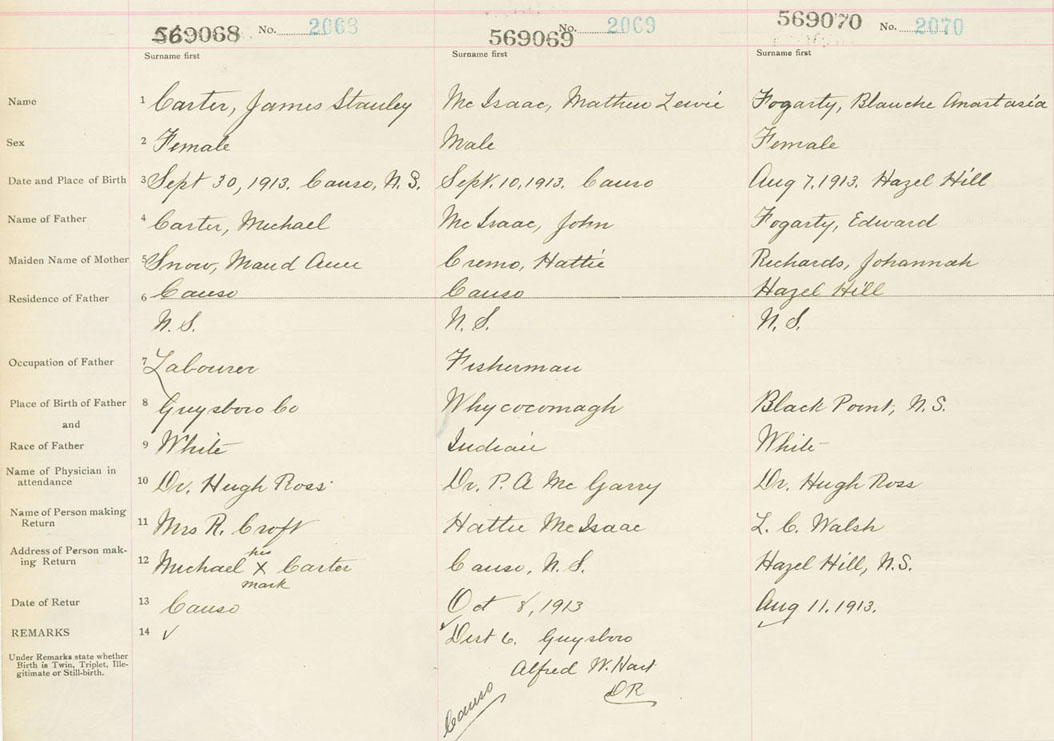 569068 No. 2068 569069 No. 2069 569070 No. 2070
Surname first Surname first Surname first
Name 1 Carter, James Stanley Mc Isaac, Mathew Lewie Fogarty, Blanche Anastasia
Sex 2 Female Male Female
Date and Place of Birth 3 Sept 30, 1913. Canso, N.S. Sept. 10, 1913. Canso Aug 7, 1913. Hazel Hill
Name of Father 4 Carter, Michael Mc Isaac, John Fogarty, Edward
Maiden Name of Mother 5 Snow, Maud Ann Cremo, Hattie Richards, Johannah
Residence of Father 6 Canso Canso Hazel Hill
N. S. N. S. N. S.
Occupation of Father 7 Labourer Fisherman
Place of Birth of Father 8 Guysboro Co Whycocomagh Black Point, N.S.
and
Race of Father 9 White Indian White
Name of Physician in
attendance 10 Dr. Hugh Ross Dr. P. A Mc Garry Dr. Hugh Ross
Name of Person making
Return 11 Mrs R. Croft Hattie McIsaac L. C. Walsh
Address of Person mak-
ing Return 12 Michael his X mark Carter Canso, N. S. Hazel Hill, N.S.
Date of Retur 13 Canso Oct 8, 1913 Aug 11. 1913.
REMARKS 14 Dist 6. Guysboro
Under Remarks state whether
Birth is Twin, Triplet, Ille-
gitimate or Still-birth.
Alfred W. Hart
DR
Canso